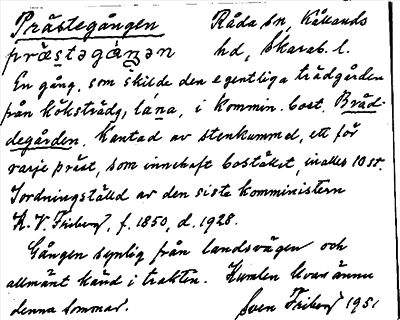 Prästegången Råda sn, Kållands
præstəgáŋən hd, Skarab. l.
En gång, som skilde den egentliga trädgården
från köksträdg, låna, i kommin. bost. Bräd-
degården. Kantad av stenkummel, ett för
varje präst, som innehaft bostället, inalles 10 st.
Iordningställd av den siste komministern
K. V. Friberg, f. 1850, d. 1928.
Gången synlig från landsvägen och
allmänt känd i trakten. Kumlen kvar ännu
denna sommar. Sven Friberg 1951